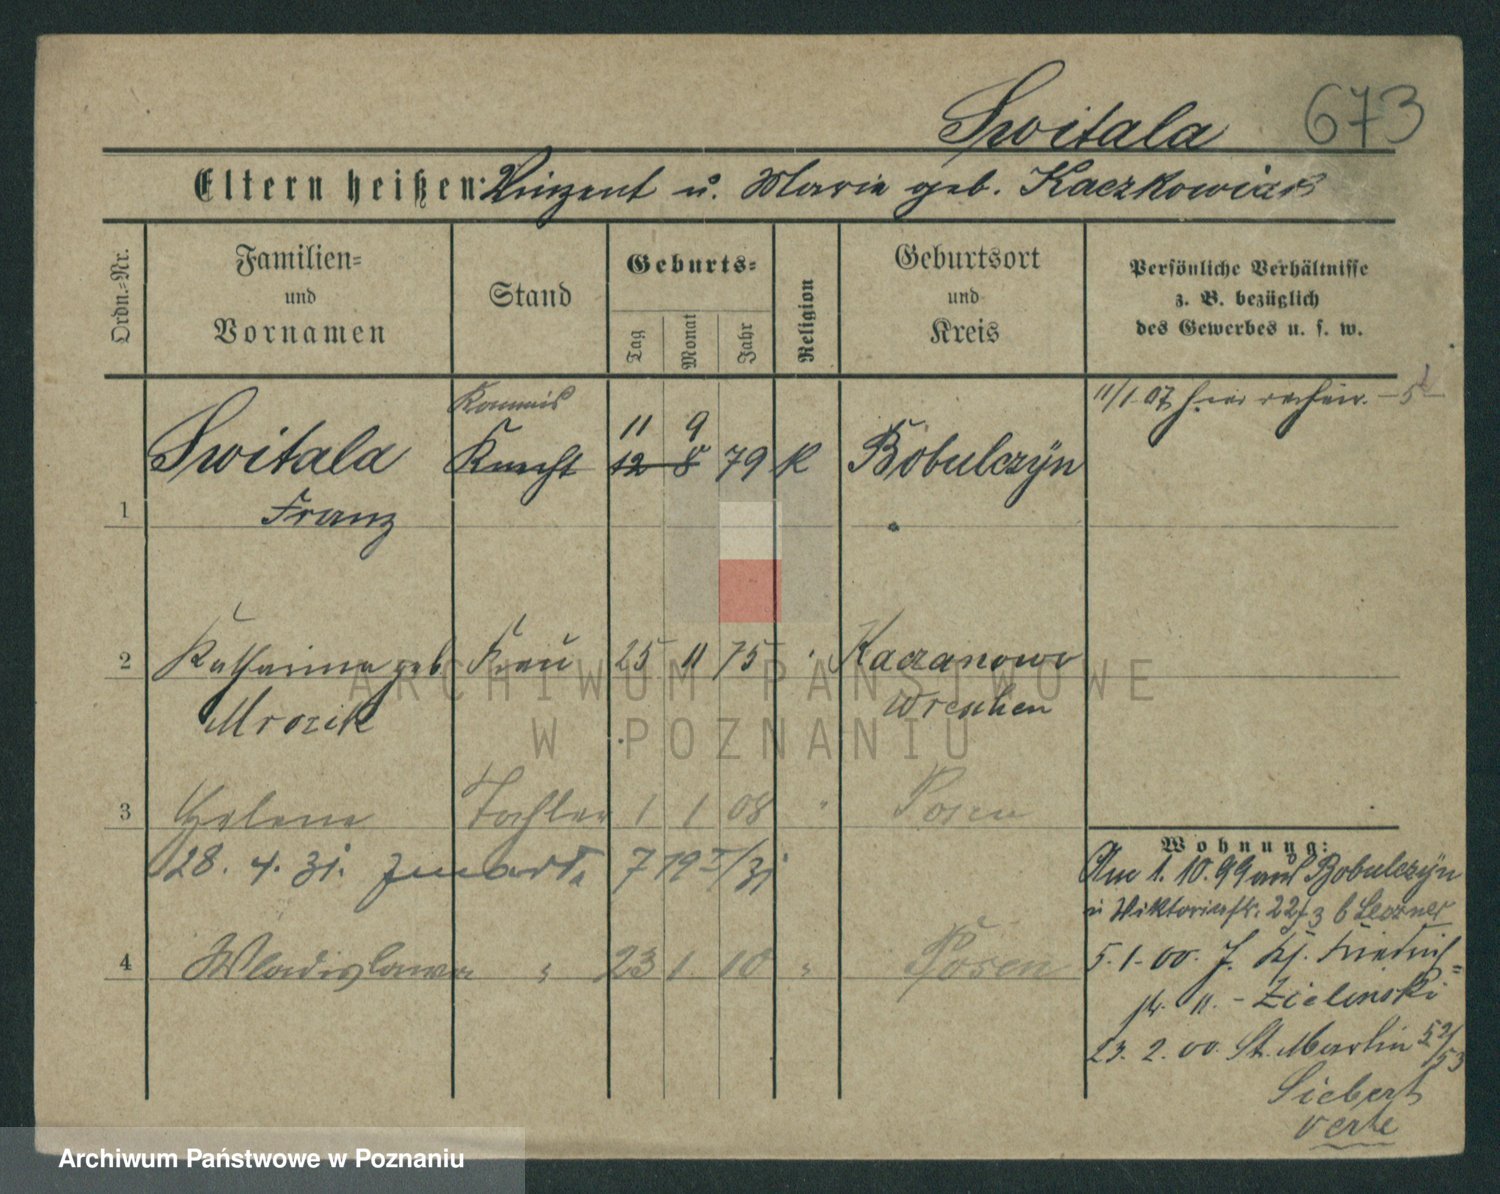 Switala
673
Eltern heißen: Vinzent u. Marie geb. Kaczkowiak
Ordn.=Nr.
Familien=
und
Vornamen
Stand
Geburts=
Tag
Monat
Jahr
Religion
Geburtsort
und
Kreis
Persönliche Verhältnisse
z. B. bezüglich
des Gewerbes u. s. w.
11/1 07
Kommis
11 9
Switala Knecht 12 8 79 K Bobulczyn
1 Franz
2 Katharina geb Frau 25 11 75 " Kaczanowo
Mrozik Wreschen
3 Helene Tochter 1 1 08 " Posen
28. 4. 31. 7
4 Wladislawa " 23 1 10 " Posen
Wohnung:
Am 1. 10. 99 aus Bobulczyn
Viktoriastr. 22
5. 1. 00. Friedrich=
str. 11. - Zielinski
23. 2. 00. St. Martin 52/53
Siebert
verte
ARCHIWUM PAŃSTWOWE
W POZNANIU
Archiwum Państwowe w Poznaniu